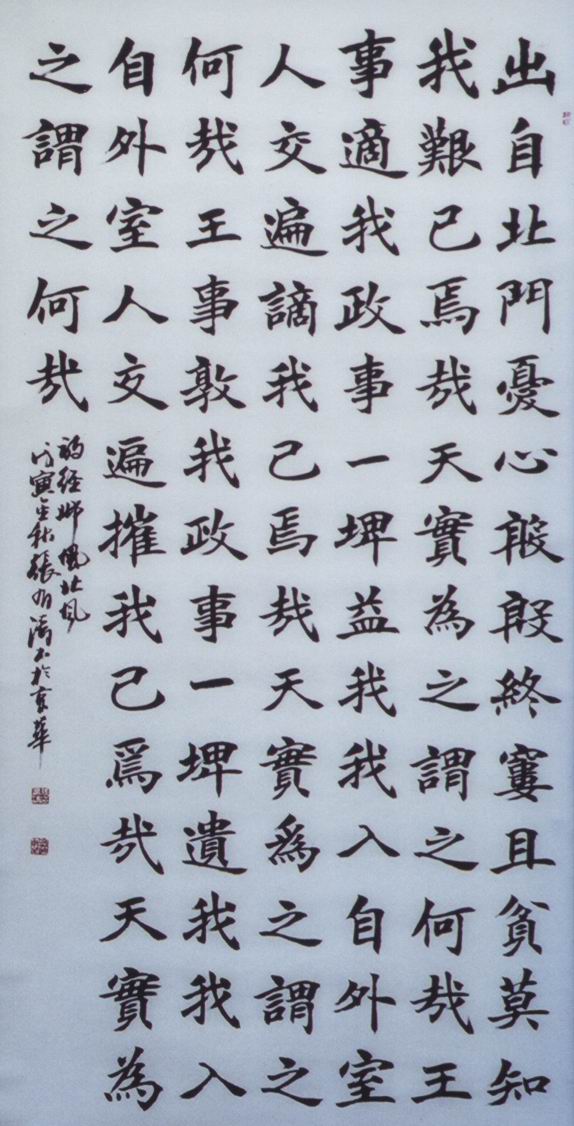 出自北門憂心殷殷終窶且貧莫知
我艱己焉哉天實為之謂之何哉王
事適我政事一埤益我我入自外室
人交遍謫我己焉哉天實為之謂之
何哉王事敦我政事一埤遺我我入
自外室人交遍摧我己焉哉天實為
之謂之何哉
詩經邶風北風
戊寅金秋張有清書於京華